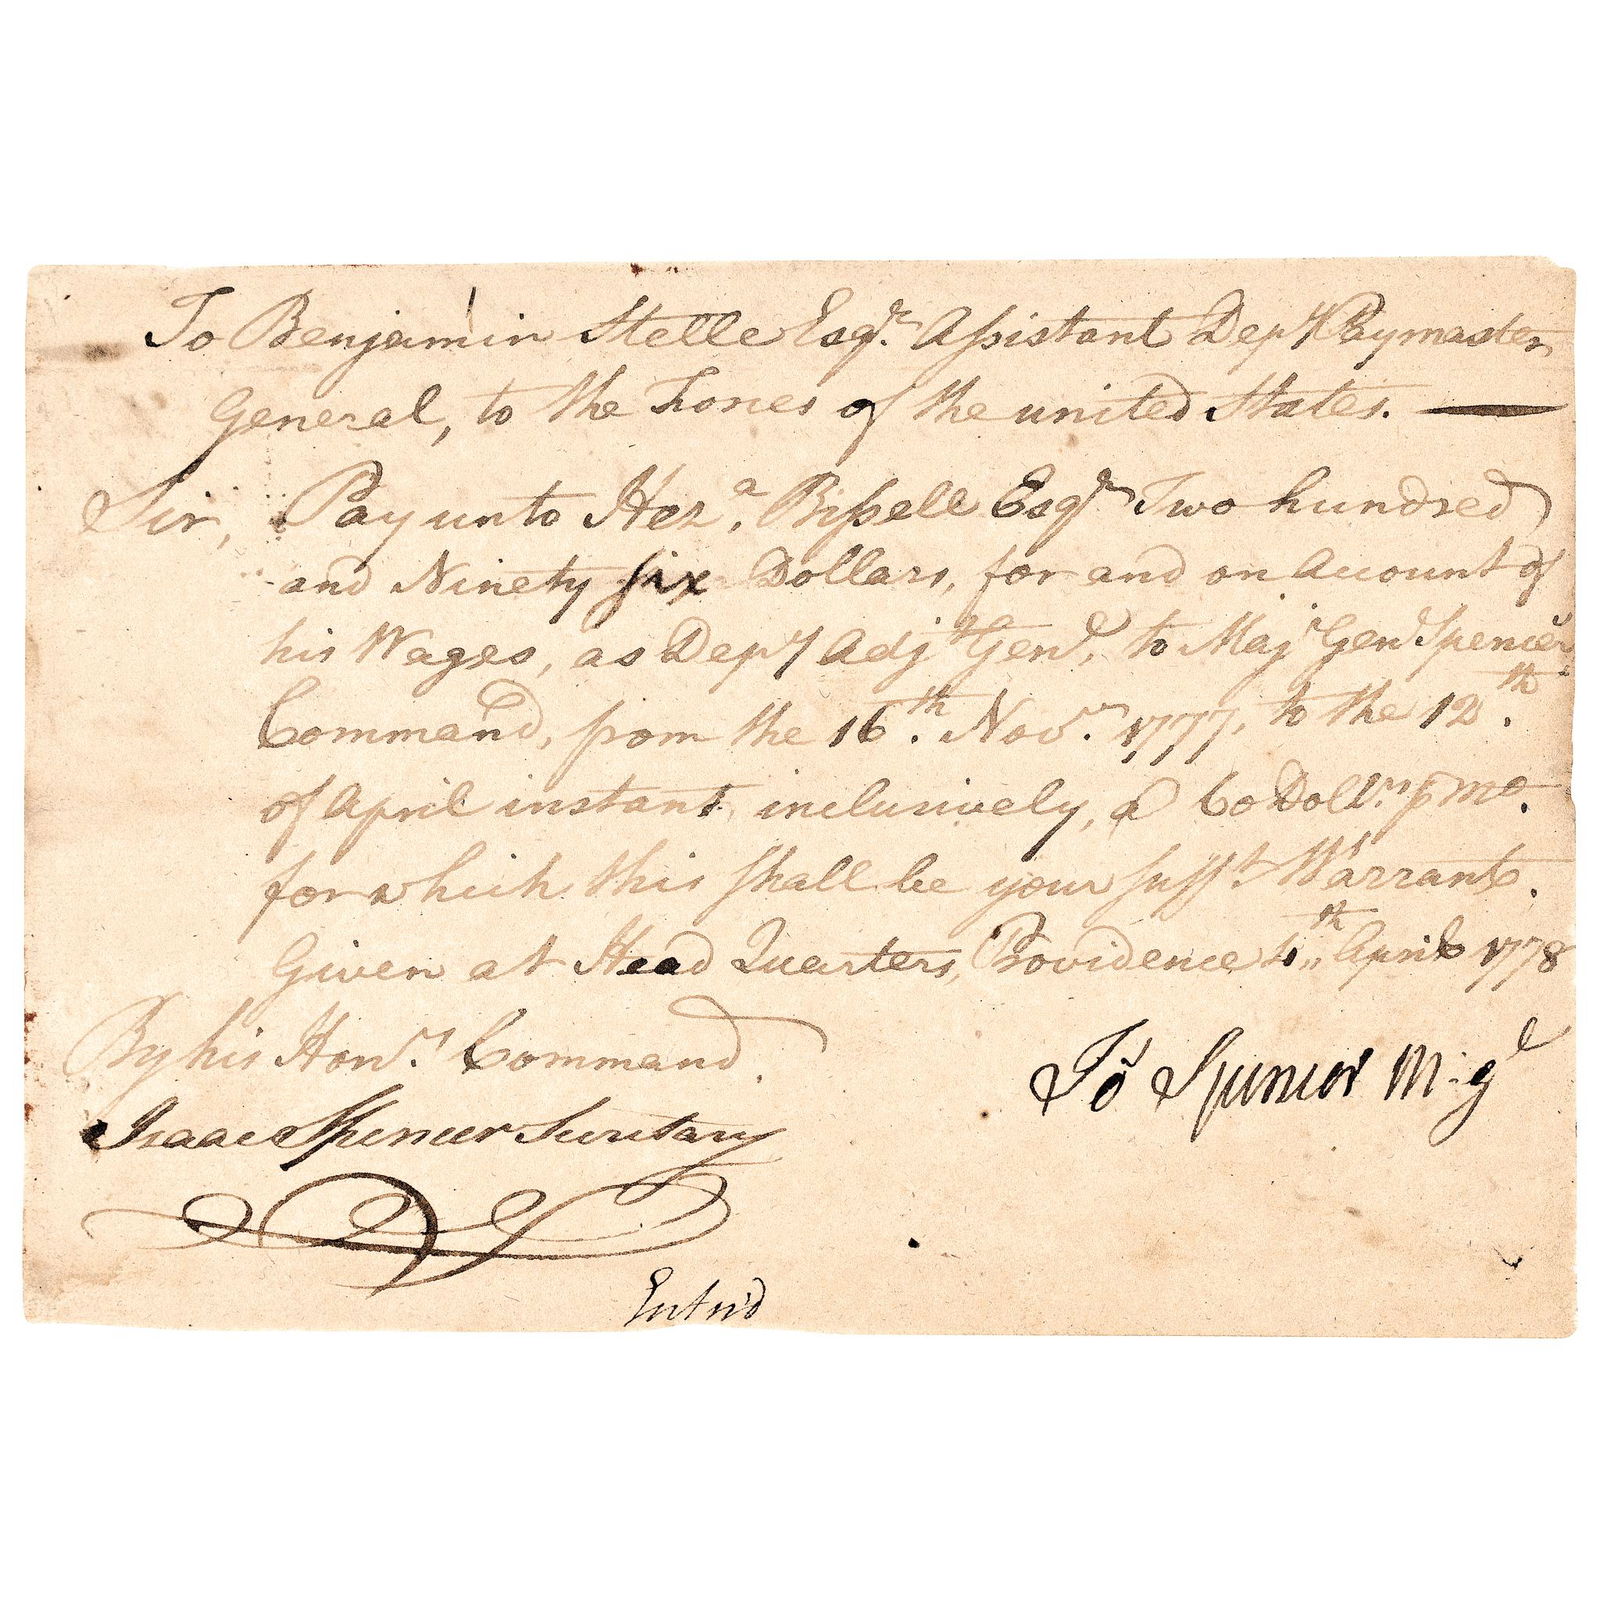 To Benjamin Stelle Esqr. Assistant Depy Paymaster
General, to the Forces of the united States.
Sir, Pay unto Heza. Bissell Esqr Two hundred
and Ninety six Dollars, for and on Account of
his Wages, as Depy Adjt Genl, to Majr Genl Spencers
Command, from the 16th. Novr. 1777, to the 12th.
of April instant, inclusively, a 60 Dollrs p mo.
for which this shall be your sufft. Warrant.
Given at Head Quarters, Providence 4th April 1778
By his Honrs. Command.
Jos Spencer M:gl
Isaac Spencer Secretary
Entr'd